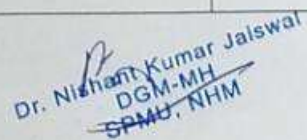 Dr. Nishant Kumar Jaiswal
DGM-MH
SPMU, NHM